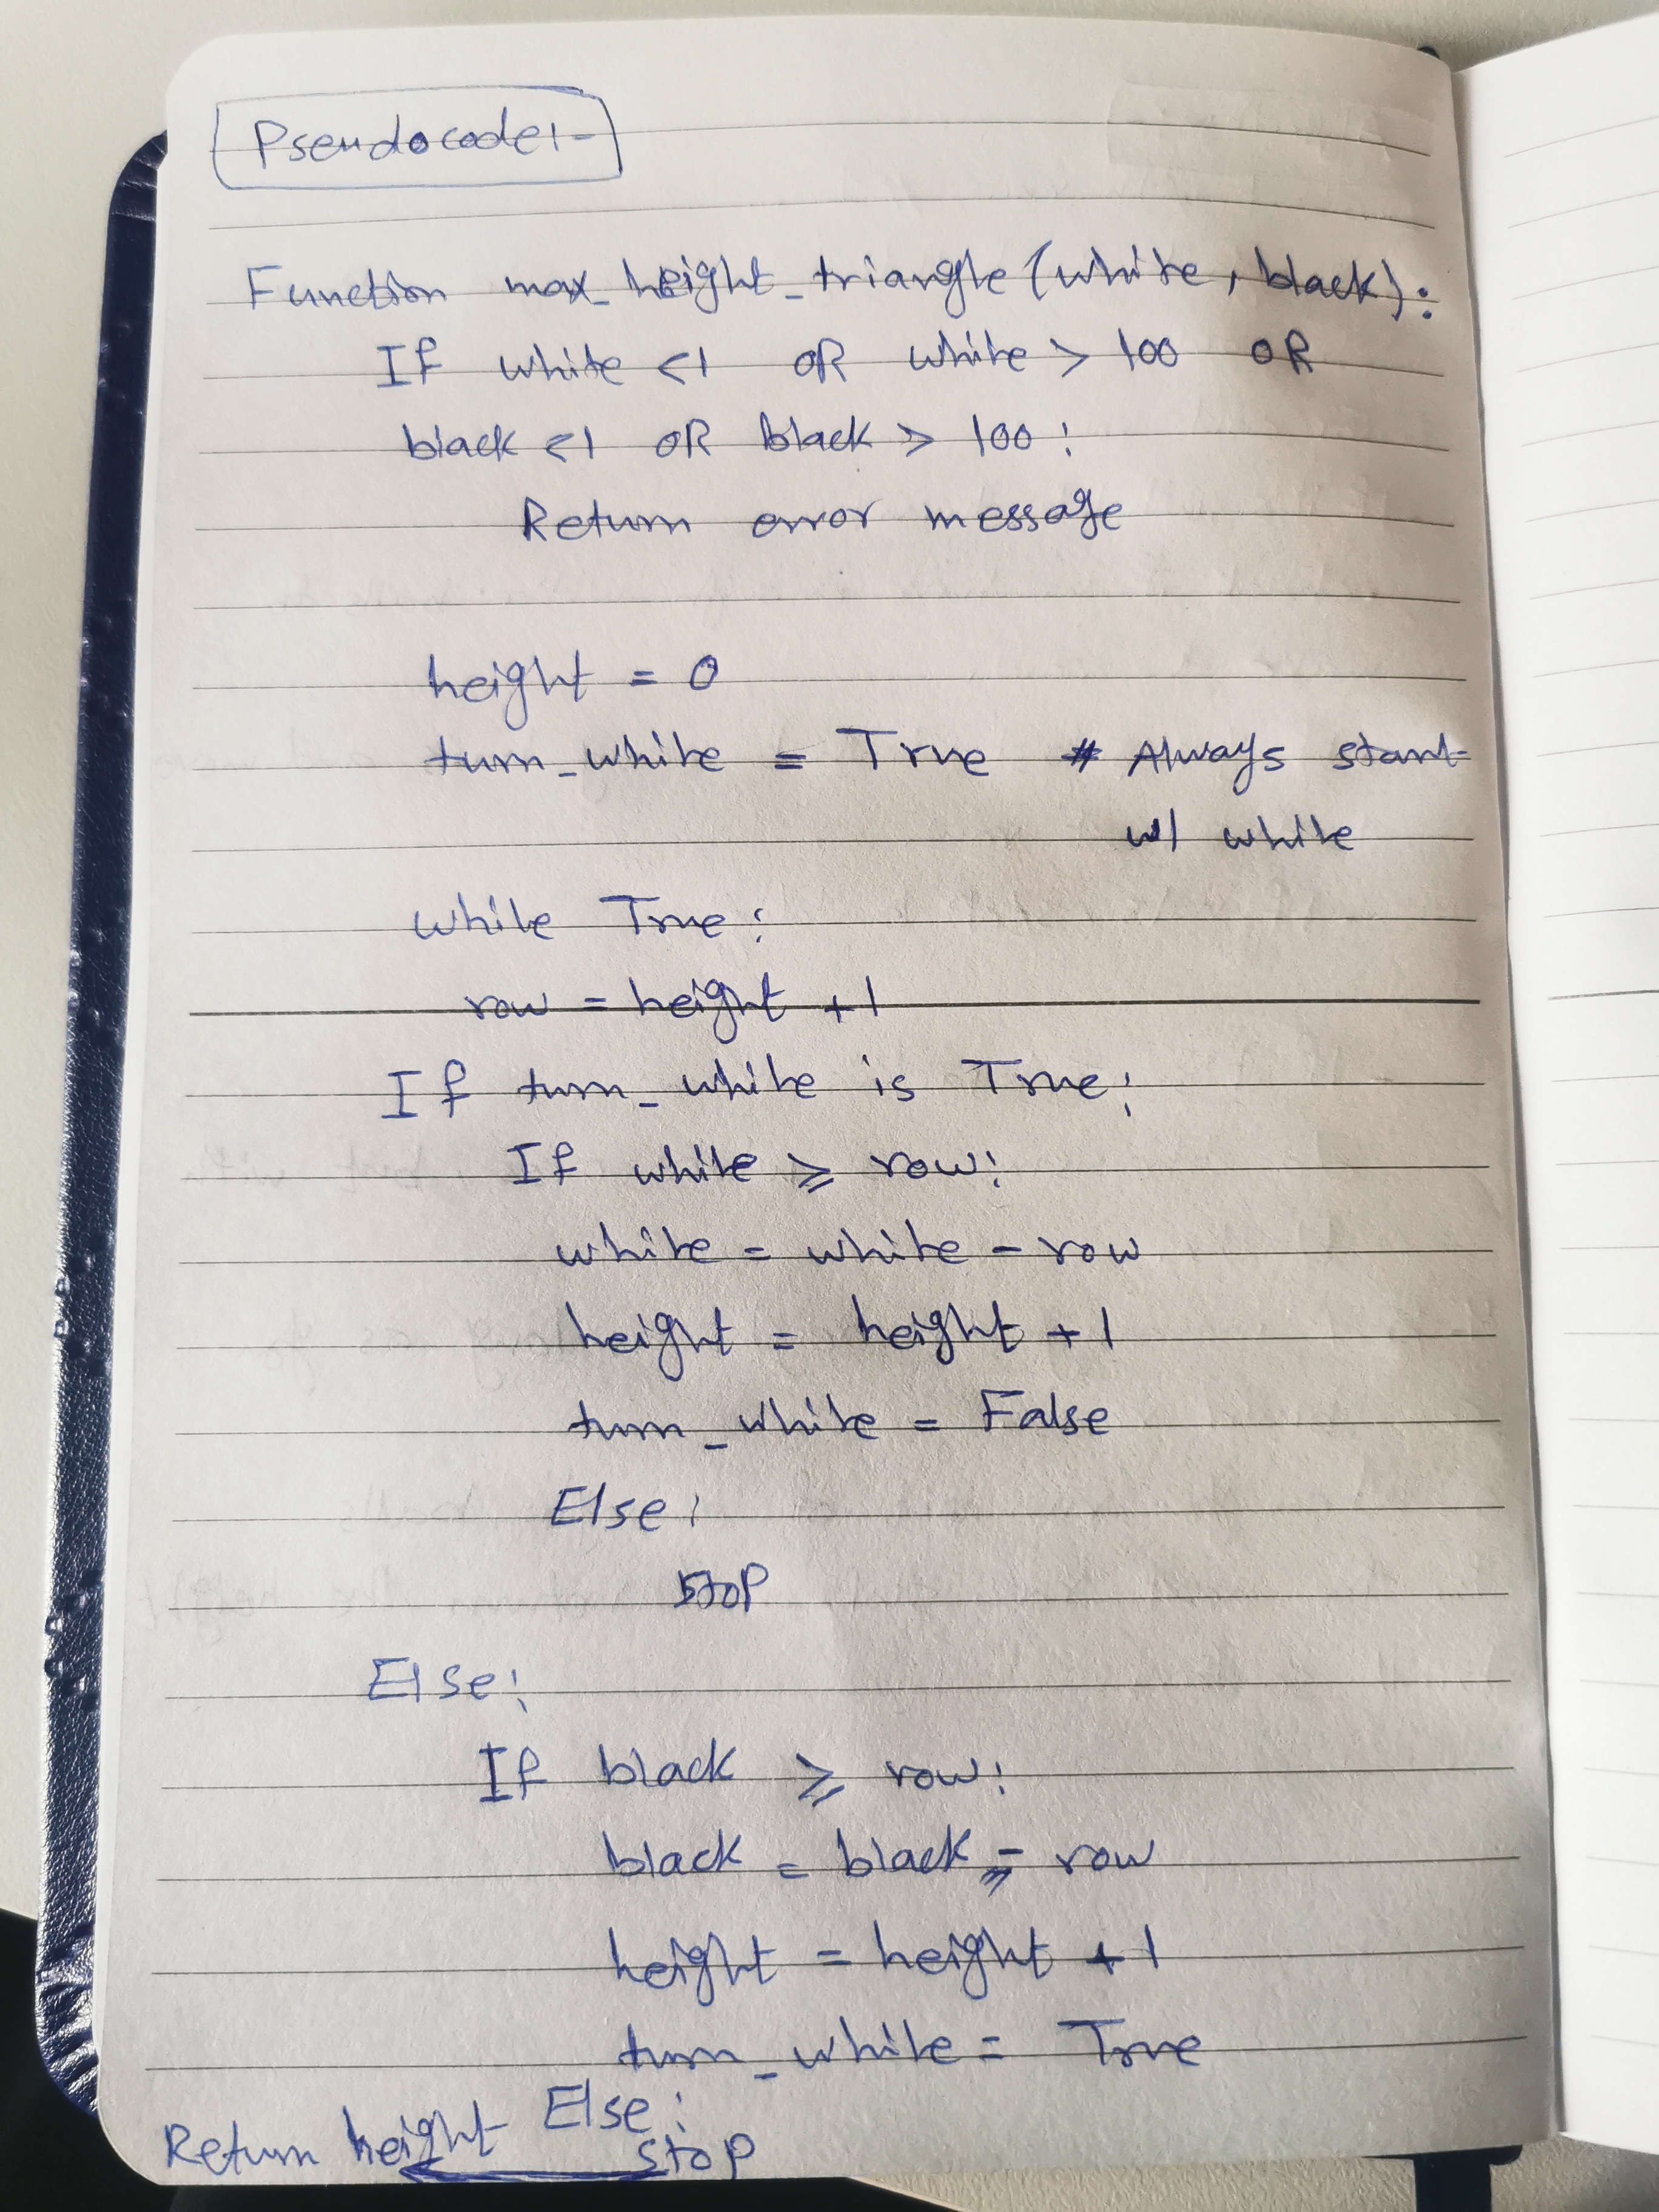 Pseudocode:-
Function max_height_triangle(white, black):
If white <1 OR white > 100 OR
black <1 OR black > 100:
Return error message
height = 0
turn_white = True # Always start
w/ white
while True:
row = height +1
If turn_white is True:
If white ≥ row:
white = white - row
height = height +1
turn_white = False
Else:
STOP
Else:
If black ≥ row:
black = black - row
height = height +1
turn_white = True
Else:
stop
Return height